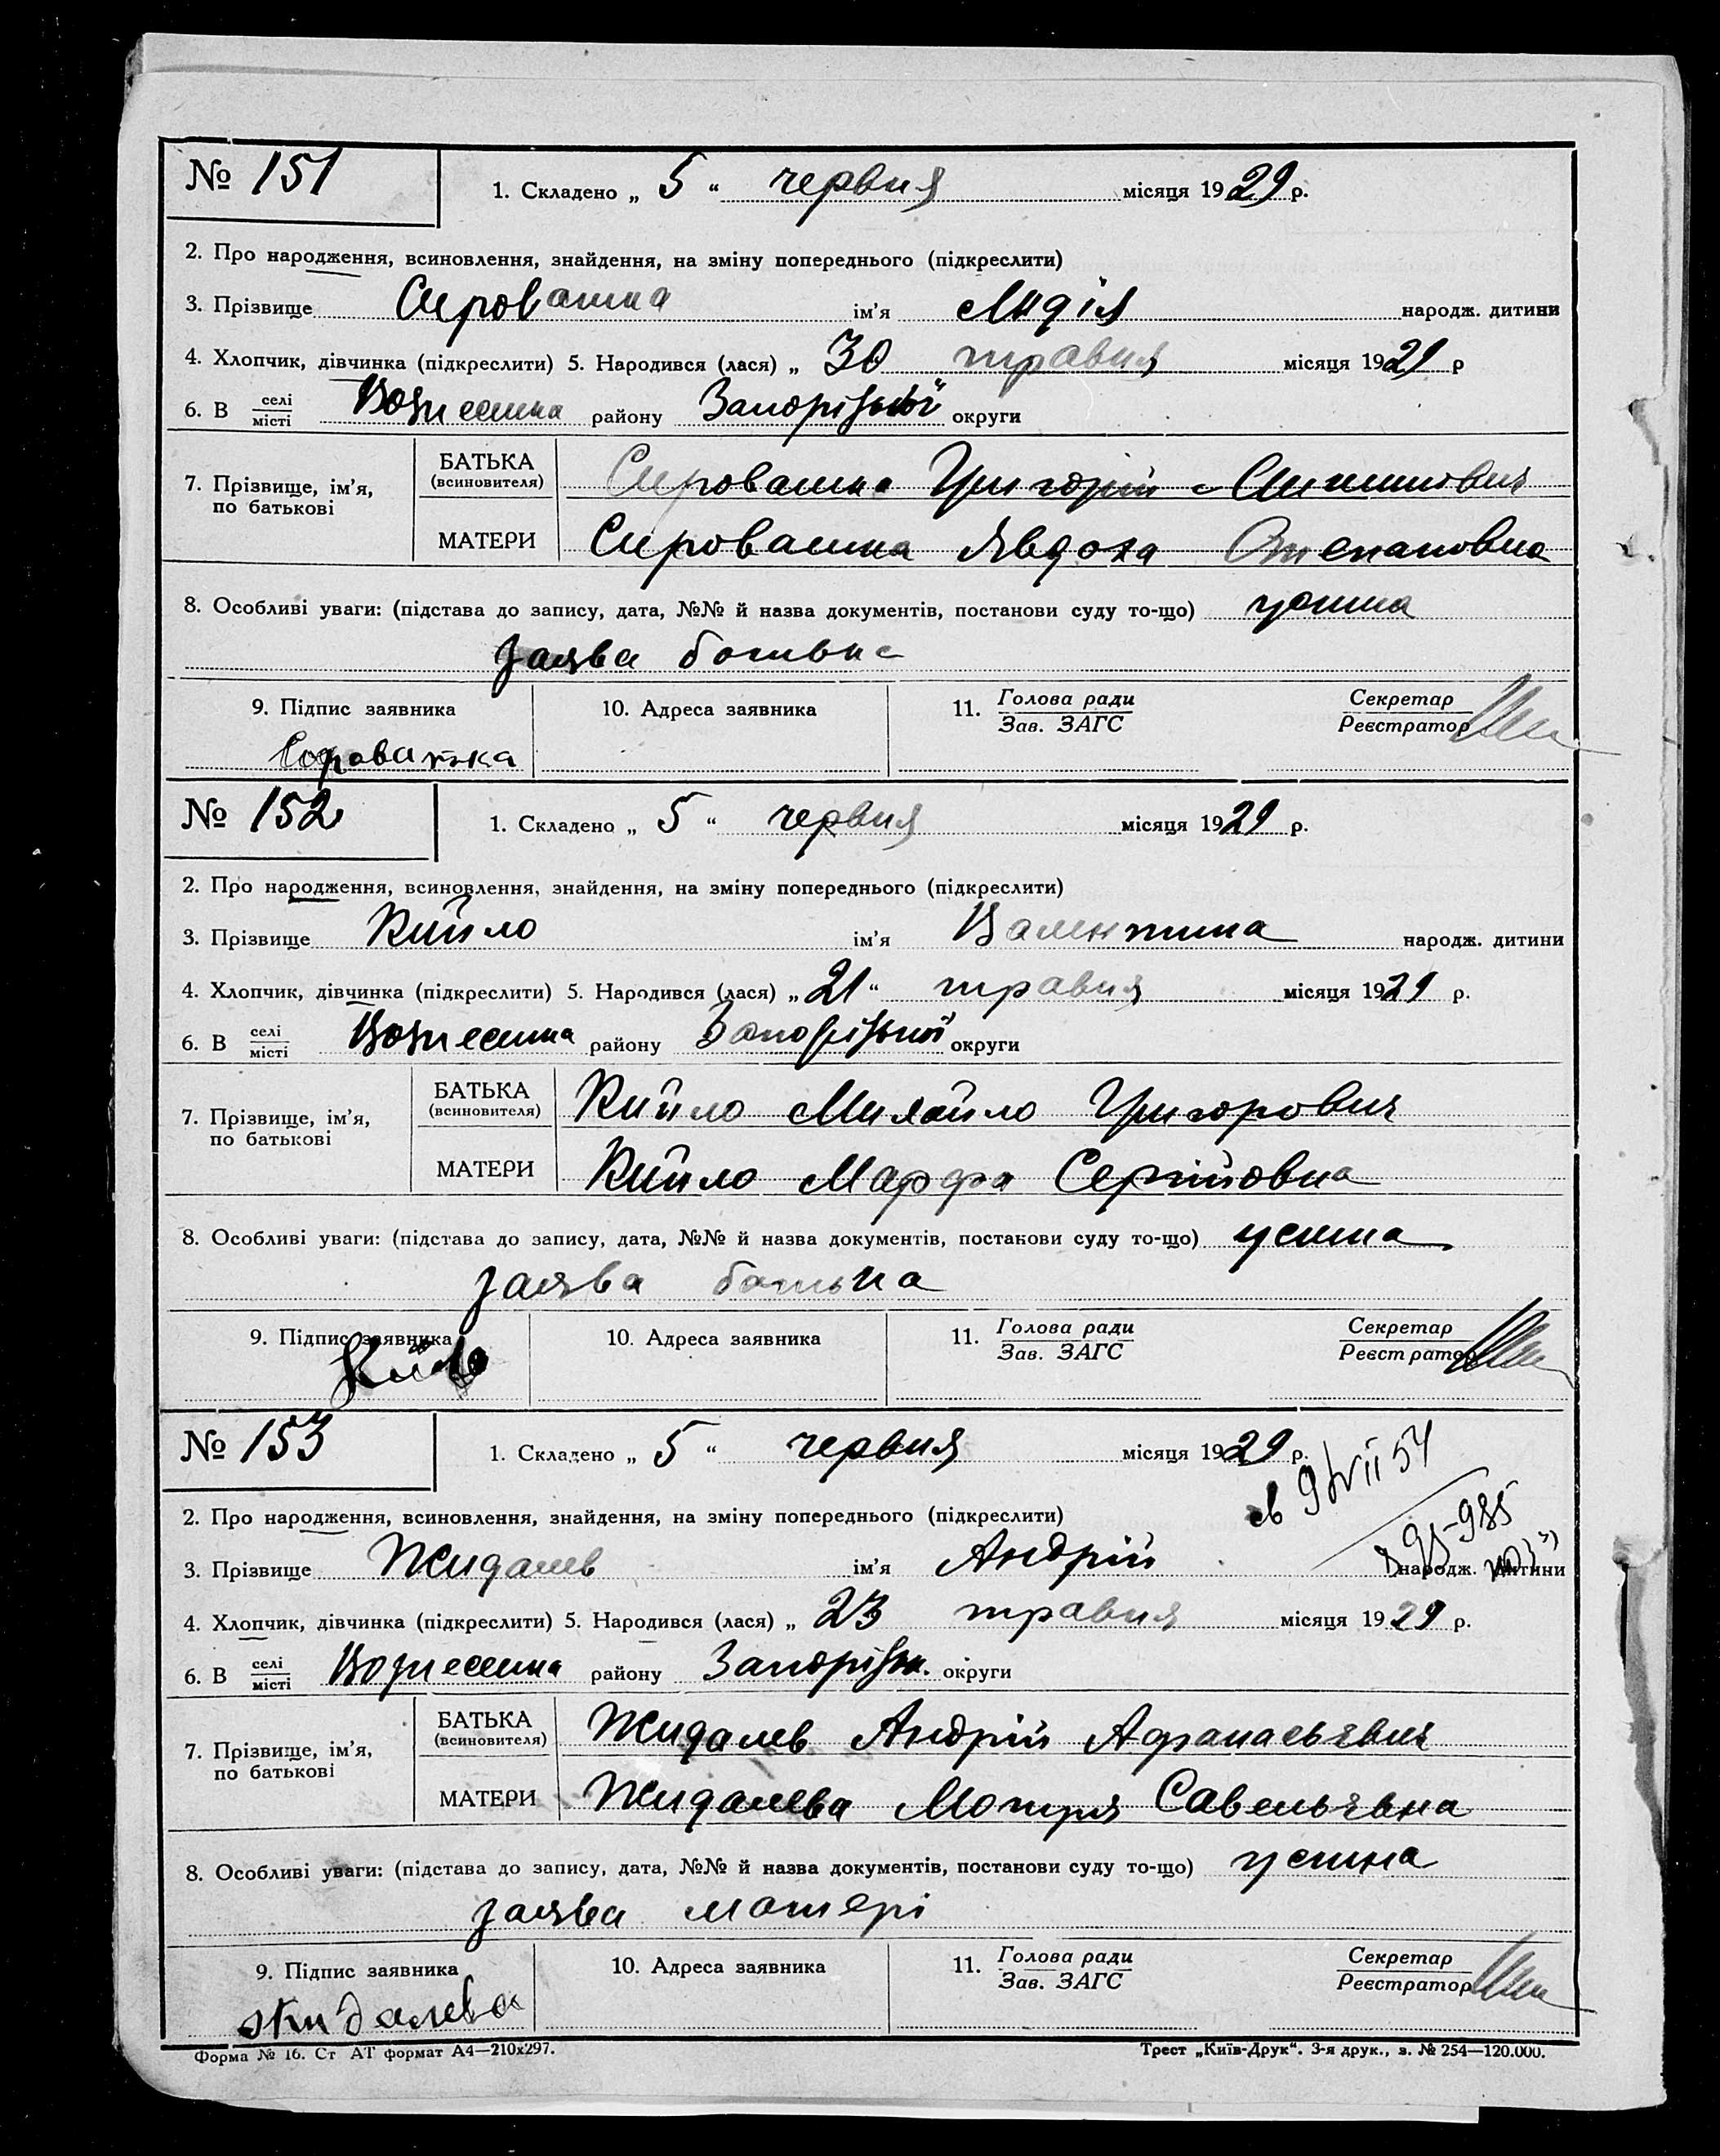 № 151 1. Складено „ 5 “ червня місяця 1929 р.
2. Про народження, всиновлення, знайдення, на зміну попереднього (підкреслити)
3. Прізвище Сироватка ім’я Лидія народж. дитини
4. Хлопчик, дівчинка (підкреслити) 5. Народився (лася) „ 30 травня місяця 1929 р
6. В селі
місті Вознесенка району Запорізької округи
7. Прізвище, ім’я,
по батькові
БАТЬКА
(всиновителя) Сироватка Григорій
МАТЕРИ Сироватка Явдоха Степановна
8. Особливі уваги: (підстава до запису, дата, №№ й назва документів, постанови суду то-що) усна
заява батька
9. Підпис заявника 10. Адреса заявника 11. Голова ради
Зав. ЗАГС Секретар
Реєстратор
Сороватка
№ 152 1. Складено „ 5 “ червня місяця 1929 р.
2. Про народження, всиновлення, знайдення, на зміну попереднього (підкреслити)
3. Прізвище Кийло ім’я Валентина народж. дитини
4. Хлопчик, дівчинка (підкреслити) 5. Народився (лася) „ 21 “ травня місяця 1929 р.
6. В селі
місті Вознесенка району Запорізької округи
7. Прізвище, ім’я,
по батькові
БАТЬКА
(всиновителя) Кийло Михайло Григорович
МАТЕРИ Кийло Марфа Сергійовна
8. Особливі уваги: (підстава до запису, дата, №№ й назва документів, постанови суду то-що) усна
заява батька
9. Підпис заявника 10. Адреса заявника 11. Голова ради
Зав. ЗАГС Секретар
Реєстратор
№ 153 1. Складено „ 5 “ червня місяця 1929 р.
2. Про народження, всиновлення, знайдення, на зміну попереднього (підкреслити)
3. Прізвище Жидалев ім’я Андрій народж. дитини
4. Хлопчик, дівчинка (підкреслити) 5. Народився (лася) „ 23 травня місяця 1929 р.
6. В селі
місті Вознесенка району Запорізьк. округи
7. Прізвище, ім’я,
по батькові
БАТЬКА
(всиновителя) Жидалев Андрій Афанасьевич
МАТЕРИ Жидалева Мотря Савельевна
8. Особливі уваги: (підстава до запису, дата, №№ й назва документів, постанови суду то-що) устна
заява матері
9. Підпис заявника 10. Адреса заявника 11. Голова ради
Зав. ЗАГС Секретар
Реєстратор
Жидалева
Форма № 16. Ст АТ формат А4—210х297. Трест „Київ-Друк“. 3-я друк., з. № 254—120.000.